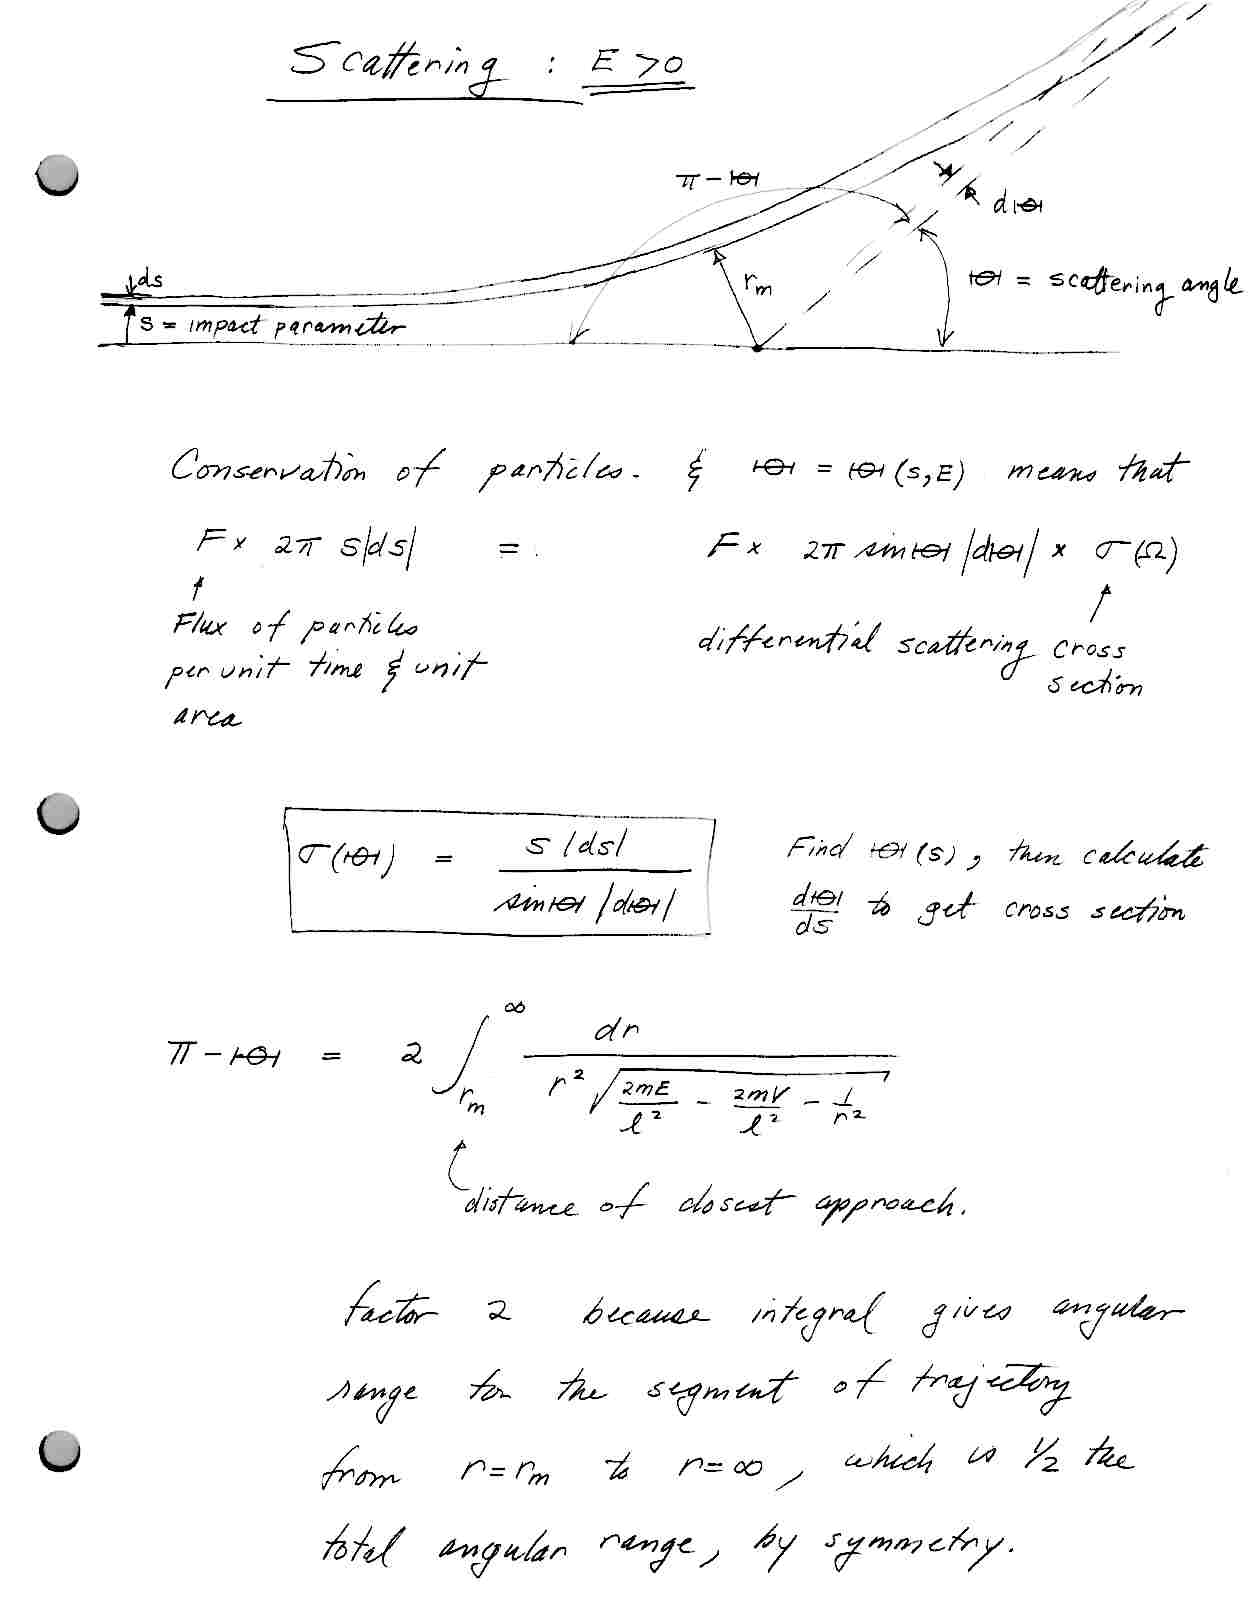 Scattering : E > 0
π − Θ
dΘ
ds
r_m
Θ = scattering angle
s = impact parameter
Conservation of particles. & Θ = Θ(s,E) means that
F × 2π s|ds| = F × 2π sinΘ |dΘ| × σ(Ω)
↑ ↑
Flux of particles
per unit time & unit
area
differential scattering cross
section
σ(Θ) = s |ds| / sinΘ |dΘ|
Find Θ(s), then calculate
dΘ/ds to get cross section
π − Θ = 2 ∫_{r_m}^{∞} dr / r² √(2mE/ℓ² − 2mV/ℓ² − 1/r²)
distance of closest approach.
factor 2 because integral gives angular
range for the segment of trajectory
from r = r_m to r = ∞, which is 1/2 the
total angular range, by symmetry.